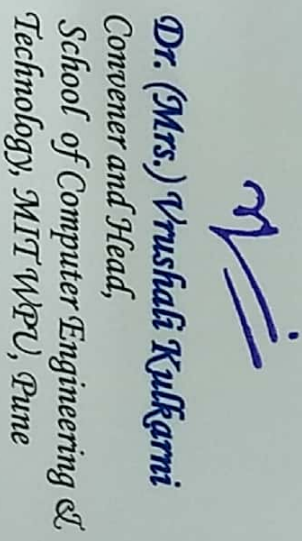 Dr. (Mrs.) Vrushali Kulkarni
Convener and Head,
School of Computer Engineering &
Technology, MIT WPU, Pune